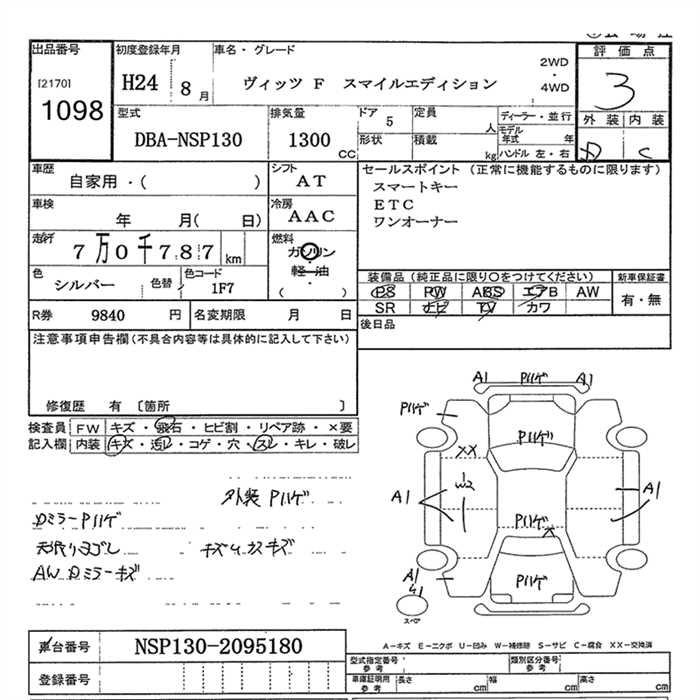 出品番号
[2170]
1098
初度登録年月
H24 8月
車名・グレード
ヴィッツ F スマイルエディション
2WD
・
4WD
評価点
3
外装 内装
D C
型式
DBA-NSP130
排気量
1300 CC
ドア 5
定員 人
形状
積載 kg
ディーラー・並行
モデル年式 年
ハンドル 左・右
車歴
自家用・( )
シフト
AT
車検
年 月( 日)
冷房
AAC
走行
7万0千787 km
燃料
ガソリン
軽・油
( )
色
シルバー
色替
色コード
1F7
R券 9840 円
名変期限 月 日
セールスポイント (正常に機能するものに限ります)
スマートキー
ETC
ワンオーナー
装備品(純正品に限り○をつけてください)
PS PW ABS エアB AW
SR ナビ TV カワ
新車保証書
有・無
後日品
注意事項申告欄(不具合内容等は具体的に記入して下さい)
修復歴 有 〔箇所 〕
検査員 FW キズ・飛石・ヒビ割・リペア跡・×要
記入欄 内装 キズ・汚レ・コゲ・穴・スレ・キレ・破レ
外装 Pハゲ
DミラーPハゲ
天張りヨゴレ
AW Dミラーキズ
A1 Pハゲ A1
Pハゲ
Pハゲ
XX
W2
A1
A1
Pハゲ
X
Pハゲ
A1
スペア
車台番号 NSP130-2095180
登録番号
A-キズ E-エクボ U-凹み W-補修跡 S-サビ C-腐食 XX-交換済
型式指定番号
参考
類別区分番号
参考
車庫証明用
参考
長さ cm
幅 cm
高さ cm